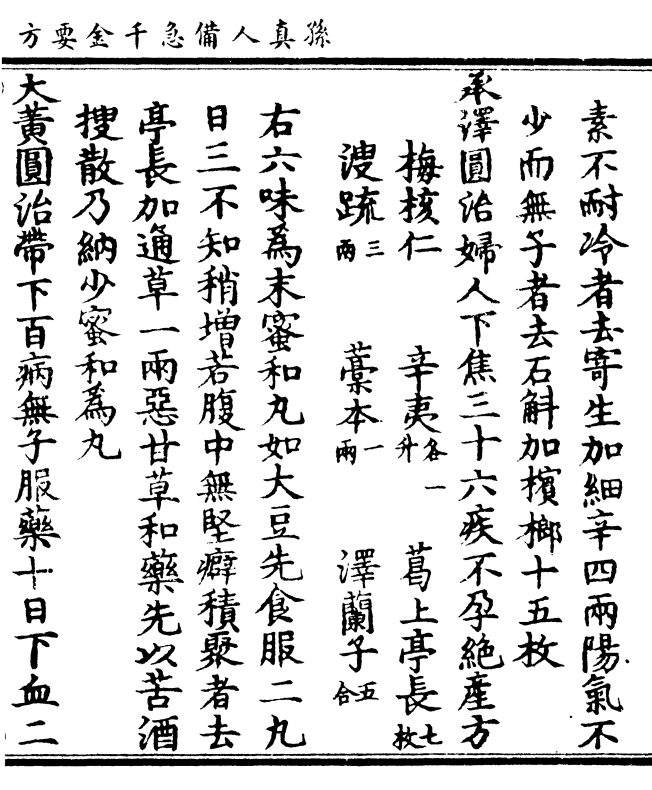 孫真人備急千金要方
素不耐冷者去寄生加細辛四兩陽氣不
少而無子者去石斛加檳榔十五枚
承澤圓治婦人下焦三十六疾不孕絶產方
梅核仁 辛夷各一升 葛上亭長七枚
溲疏三兩 藁本一兩 澤蘭子五合
右六味為末蜜和丸如大豆先食服二丸
日三不知稍增若腹中無堅癖積聚者去
亭長加通草一兩惡甘草和藥先以苦酒
搜散乃納少蜜和為丸
大黃圓治帶下百病無子服藥十日下血二